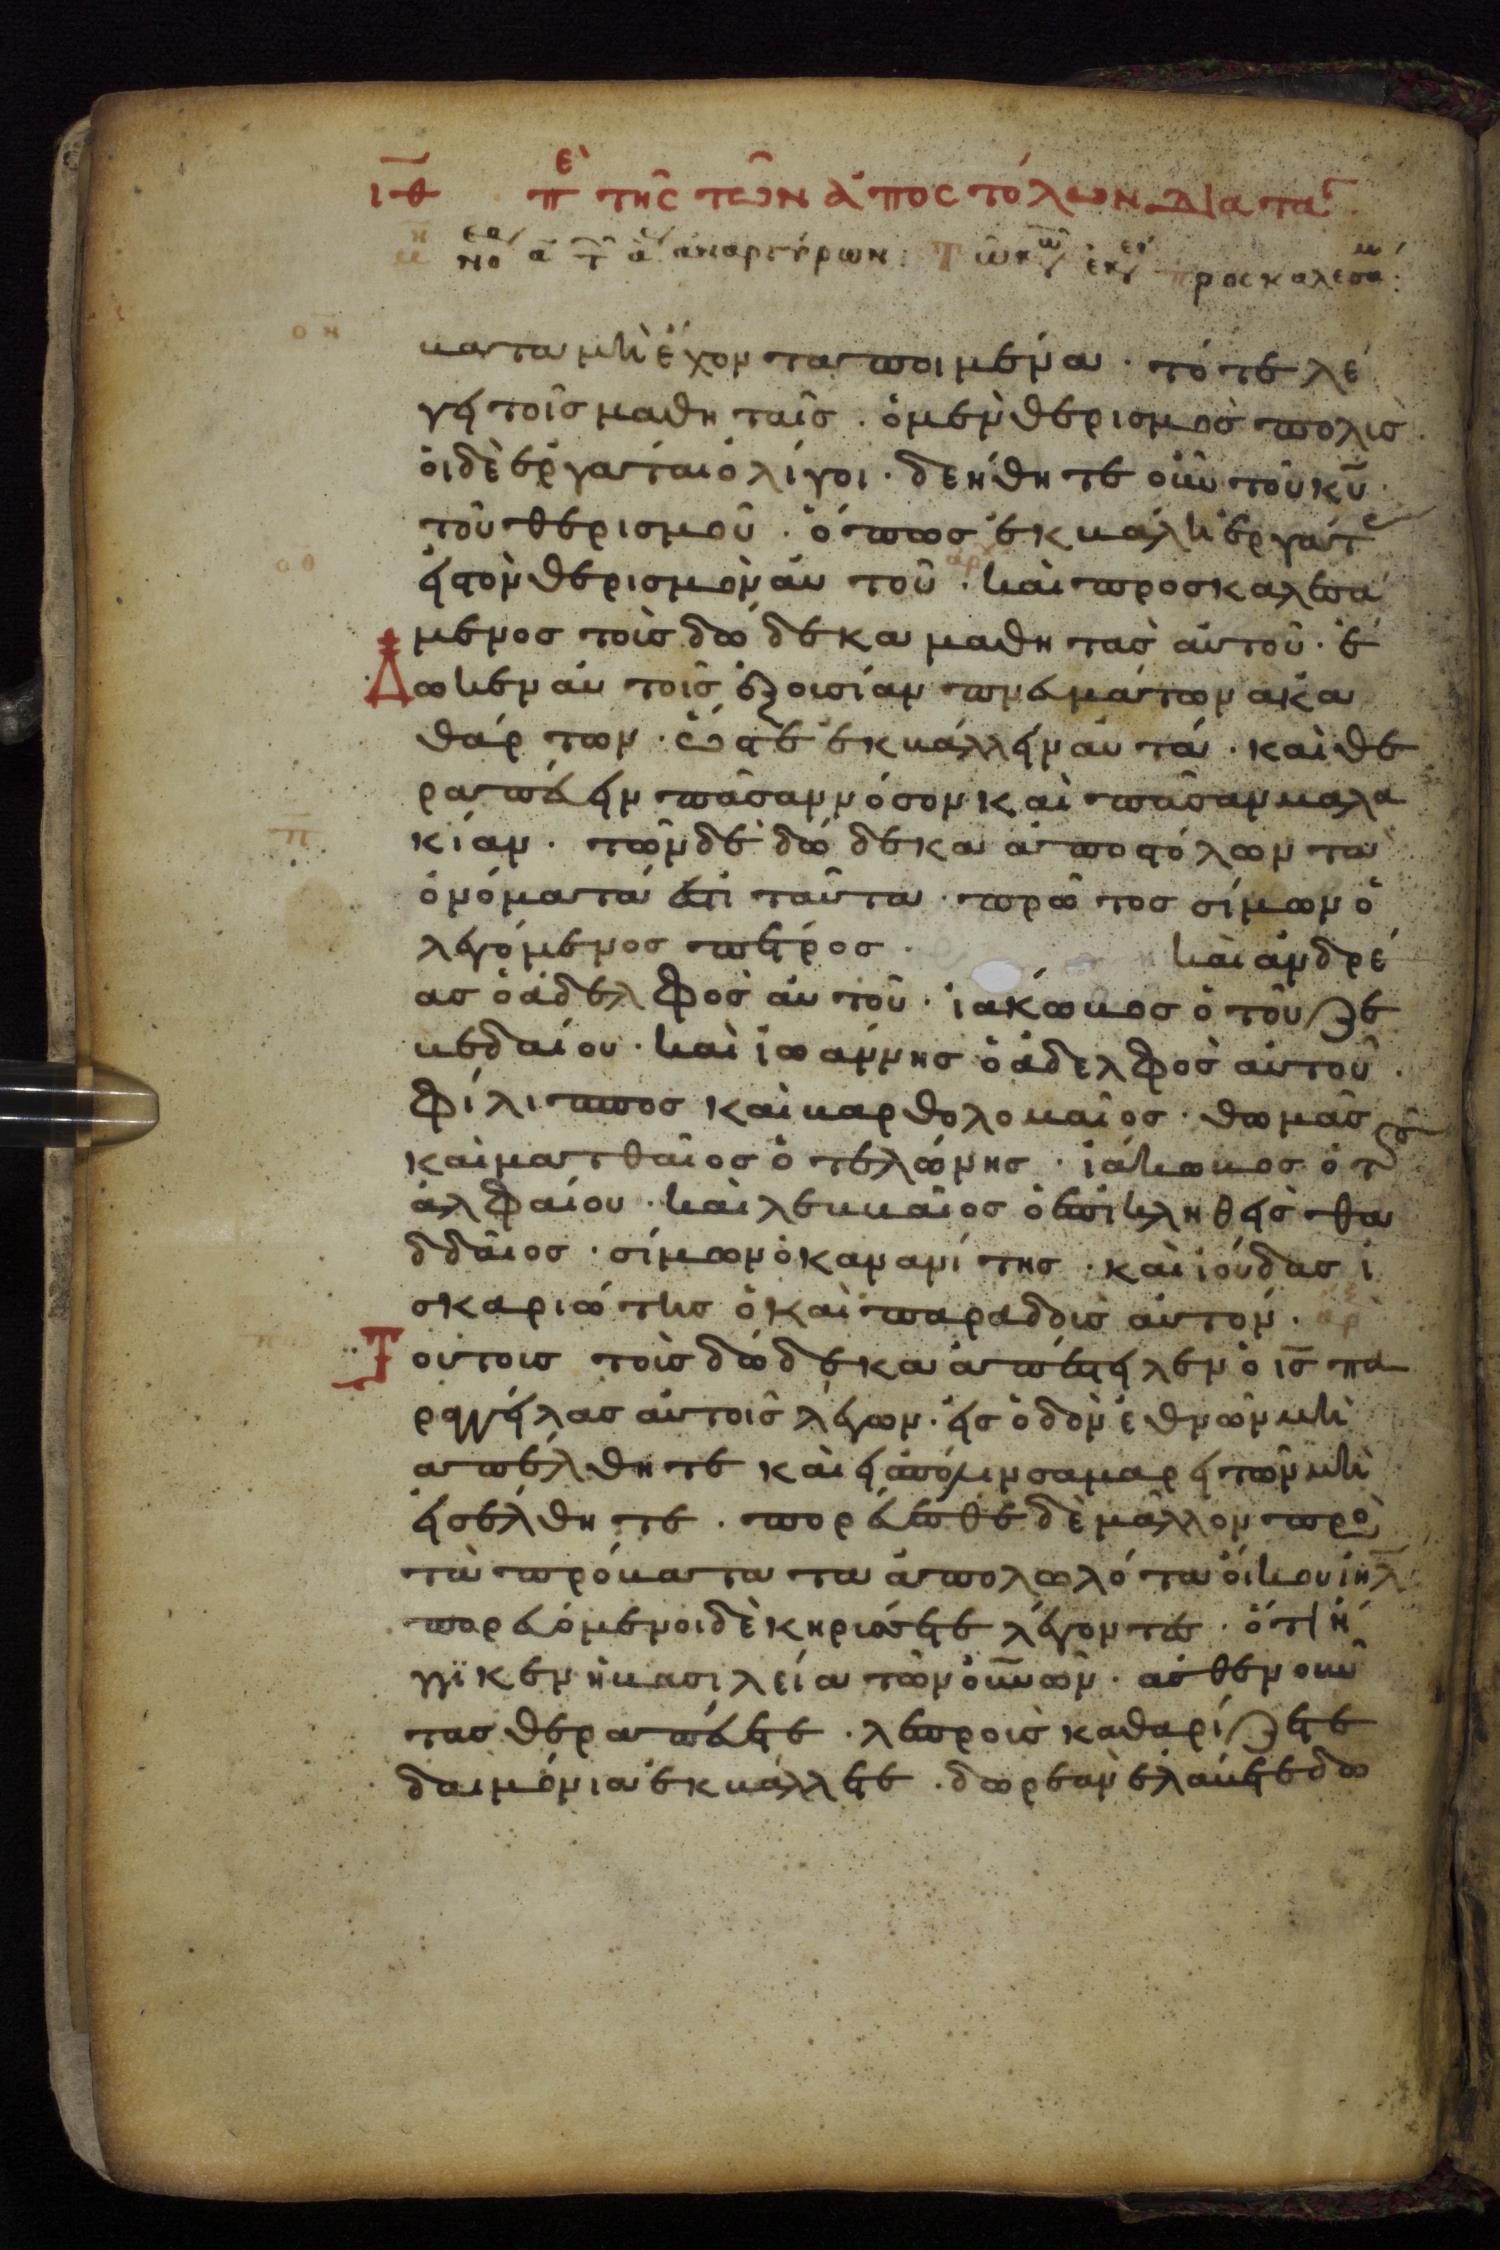 ιθ πε τῆς τῶν ἀποστόλων διατα
ἀναργύρων: Τῶ κ ἐκ προσκαλεσα:
οη
βατα μὴ ἔχοντα ποιμένα. τότε λέ
γει τοῖς μαθηταῖς. ὁ μὲν θερισμὸς πολὺς.
οἱ δὲ ἐργάται ὀλίγοι. δεήθητε οὖν τοῦ κυ
τοῦ θερισμοῦ. ὅπως ἐκβάλη ἐργάτ
οθ
εἰς τὸν θερισμὸν αὐτοῦ. ἀρχ καὶ προσκαλεσά
μενος τοὺς δώδεκα μαθητὰς αὐτοῦ. ἔ
Δωκεν αὐτοῖς ἐξουσίαν πνευμάτων ἀκα
θάρτων. ὥστε ἐκβάλλειν αὐτά. καὶ θε
ραπεύειν πᾶσαν νόσον καὶ πᾶσαν μαλα
π
κίαν. τῶν δὲ δώδεκα ἀποστόλων τὰ
ὀνόματά ἐστι ταῦτα. πρῶτος σίμων ὁ
λεγόμενος πέτρος. καὶ ἀνδρέ
ας ὁ ἀδελφὸς αὐτοῦ. ἰάκωβος ὁ τοῦ ζε
βεδαίου. καὶ ἰωάννης ὁ ἀδελφὸς αὐτοῦ.
φίλιππος καὶ βαρθολομαῖος. θωμᾶς
καὶ ματθαῖος ὁ τελώνης. ἰάκωβος ὁ τοῦ
ἀλφαίου. καὶ λεββαῖος ὁ ἐπικληθεὶς θα
δδαῖος. σίμων ὁ κανανίτης. καὶ ἰούδας ἰ
σκαριώτης ὁ καὶ παραδοὺς αὐτόν. ἀρ
Τούτους τοὺς δώδεκα ἀπέστειλεν ὁ ις πα
ραγγείλας αὐτοῖς λέγων. εἰς ὁδὸν ἐθνῶν μὴ
ἀπέλθητε καὶ εἰς πόλιν σαμαρειτῶν μὴ
εἰσέλθητε. πορεύεσθε δὲ μᾶλλον πρὸ
τὰ πρόβατα τὰ ἀπολωλότα οἴκου ιηλ
πορευόμενοι δὲ κηρύσσετε λέγοντες. ὅτι ἤ
γγικεν ἡ βασιλεία τῶν οὐνων. ἀσθενοῦν
τας θεραπεύετε. λεπροὺς καθαρίζετε
δαιμόνια ἐκβάλλετε. δωρεὰν ἐλάβετε δω